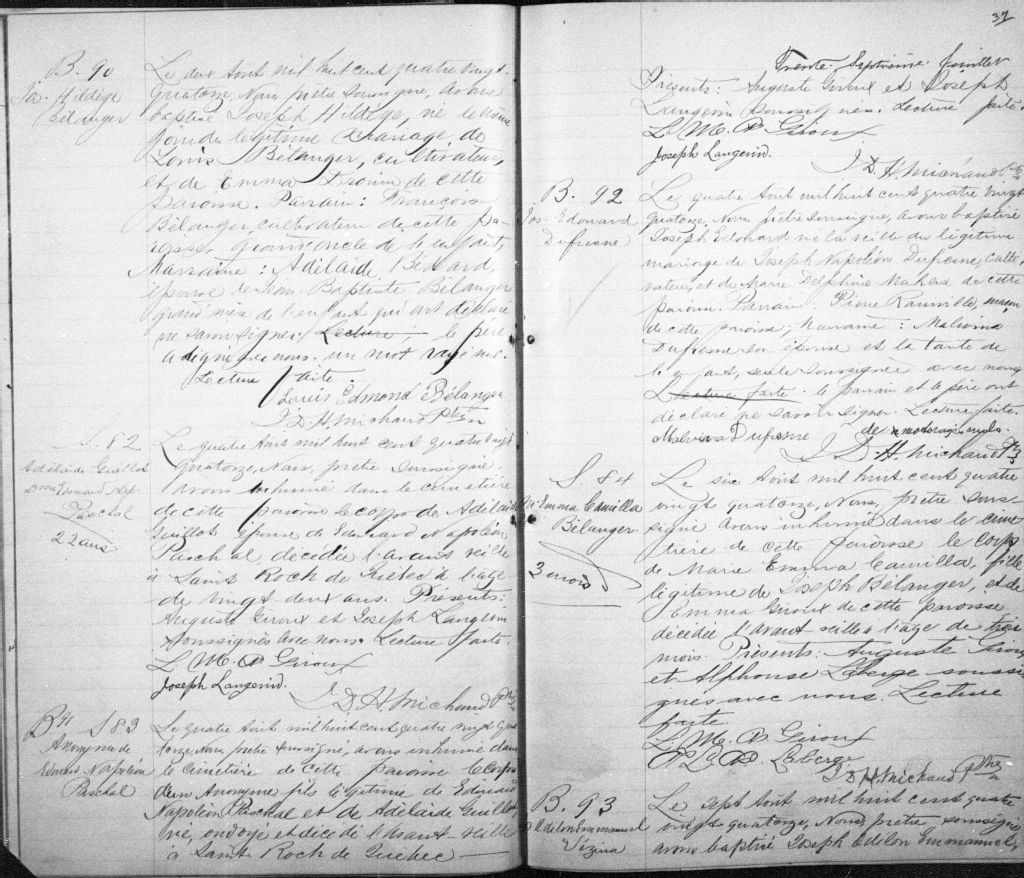 B. 90
Jos. Hildège
Bélanger
Le deux août mil huit cent quatre vingt-
quatorze, Nous prêtre soussigné, avons
baptisé Joseph Hildège, né le même
jour du légitime mariage de
Louis Bélanger, cultivateur,
et de Emma Drouin de cette
paroisse. Parrain: François
Bélanger, cultivateur de cette pa-
roisse, grand oncle de l'enfant,
Marraine: Adélaïde Bédard,
épouse de Jean-Baptiste Bélanger
grand'mère de l'enfant qui ont déclaré
ne savoir signer. Lecture; le père
a signé avec nous. un mot rayé nul.
Lecture faite.
Louis Edmond Bélanger
J. D. H. Michaud Ptre
S. 82
Adélaïde Guillot
Dme Edouard Nap.
Paschal
22 ans
Le quatre août mil huit cent quatre vingt
quatorze, Nous, prêtre soussigné,
avons inhumé dans le cimetière
de cette paroisse le corps de Adélaïde
Guillot épouse de Edouard Napoléon
Paschal décédée l'avant veille
à Saint Roch de Québec à l'âge
de vingt deux ans. Présents:
Auguste Giroux et Joseph Langevin
soussignés avec nous. Lecture faite.
L. M. A Giroux
Joseph Langevin.
J. D. H. Michaud Ptre
B 91 S 83
Anonyme de
Edouard Napoléon
Paschal
Le quatre août mil huit cent quatre vingt qua
torze, Nous, prêtre soussigné, avons inhumé dans
le cimetière de cette paroisse le corps
d'un Anonyme fils légitime de Edouard
Napoléon Paschal et de Adélaïde Guillot,
né, ondoyé et décédé l'avant veille
à Saint Roch de Québec
37
Trente-Septième feuillet
Présents: Auguste Giroux et Joseph
Langevin soussignés. Lecture faite.
L. M. A Giroux
Joseph Langevin.
J. D. H. Michaud Ptre
B. 92
Jos. Edouard
Dufresne
Le quatre août mil huit cent quatre vingt
quatorze, Nous prêtre soussigné, avons baptisé
Joseph Edouard né la veille du légitime
mariage de Joseph Napoléon Dufresne, culti-
vateur, et de Marie Delphine Maheux de cette
paroisse. Parrain: Pierre, maçon
de cette paroisse; Marraine: Malvina
Dufresne son épouse et la tante de
l'enfant, seule soussignée avec nous
Lecture faite. le parrain et le père ont
déclaré ne savoir signer. Lecture faite.
Malvina Dufresne deux mots rayés nuls.
J. D. H. Michaud Ptre
S. 84
M. Emma Camilla
Bélanger.
3 mois
Le six août mil huit cent quatre
vingt quatorze, Nous, prêtre sous-
signé avons inhumé dans le cime
tière de cette paroisse le corps
de Marie Emma Camilla, fille
légitime de Joseph Bélanger, et de
Emma Giroux de cette paroisse
décédée l'avant veille à l'âge de trois
mois. Présents: Auguste Giroux
et Alphonse Laberge soussi
gnés avec nous. Lecture
faite
L. M. A. Giroux
Laberge
J. D. H. Michaud Ptre
B. 93
Odelon Emmanuel
Vézina
Le sept août mil huit cent quatre
vingt quatorze, Nous, prêtre soussigné,
avons baptisé Joseph Odelon Emmanuel,